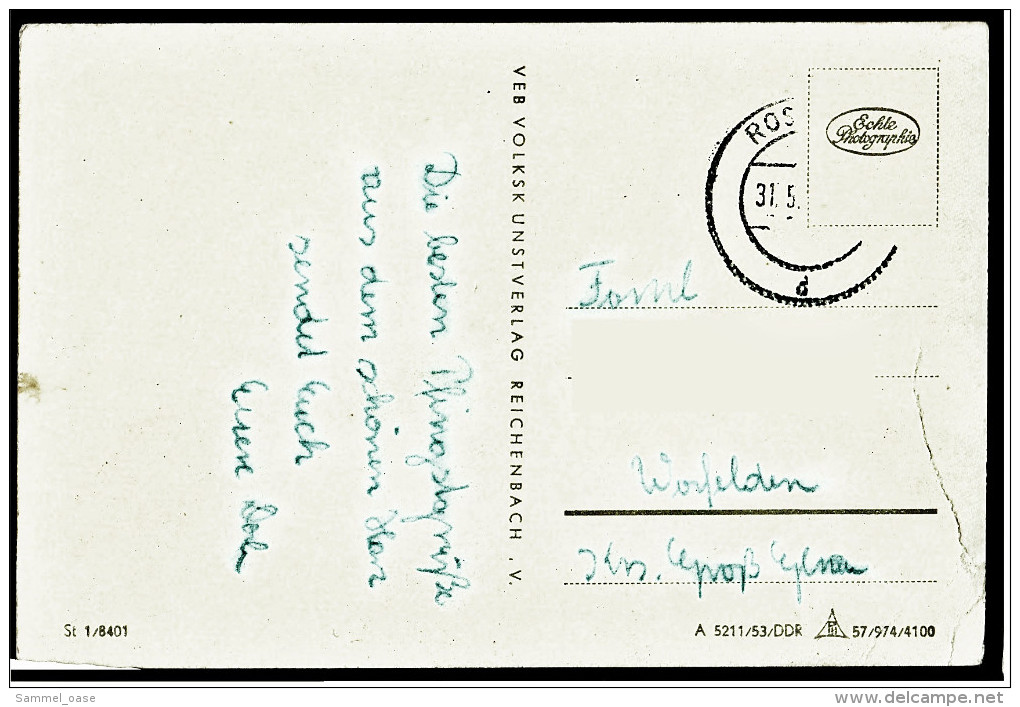 Die besten Pfingstgrüße
aus dem schönen Harz
sendet Euch
Eure
VEB VOLKSKUNSTVERLAG REICHENBACH i.V.
ROS
31. 5.
d
Echte
Photographie
Worfelden
Krs. Groß Gerau
St 1/8401
A 5211/53/DDR 57/974/4100
Sammel_oase
www.delcampe.net